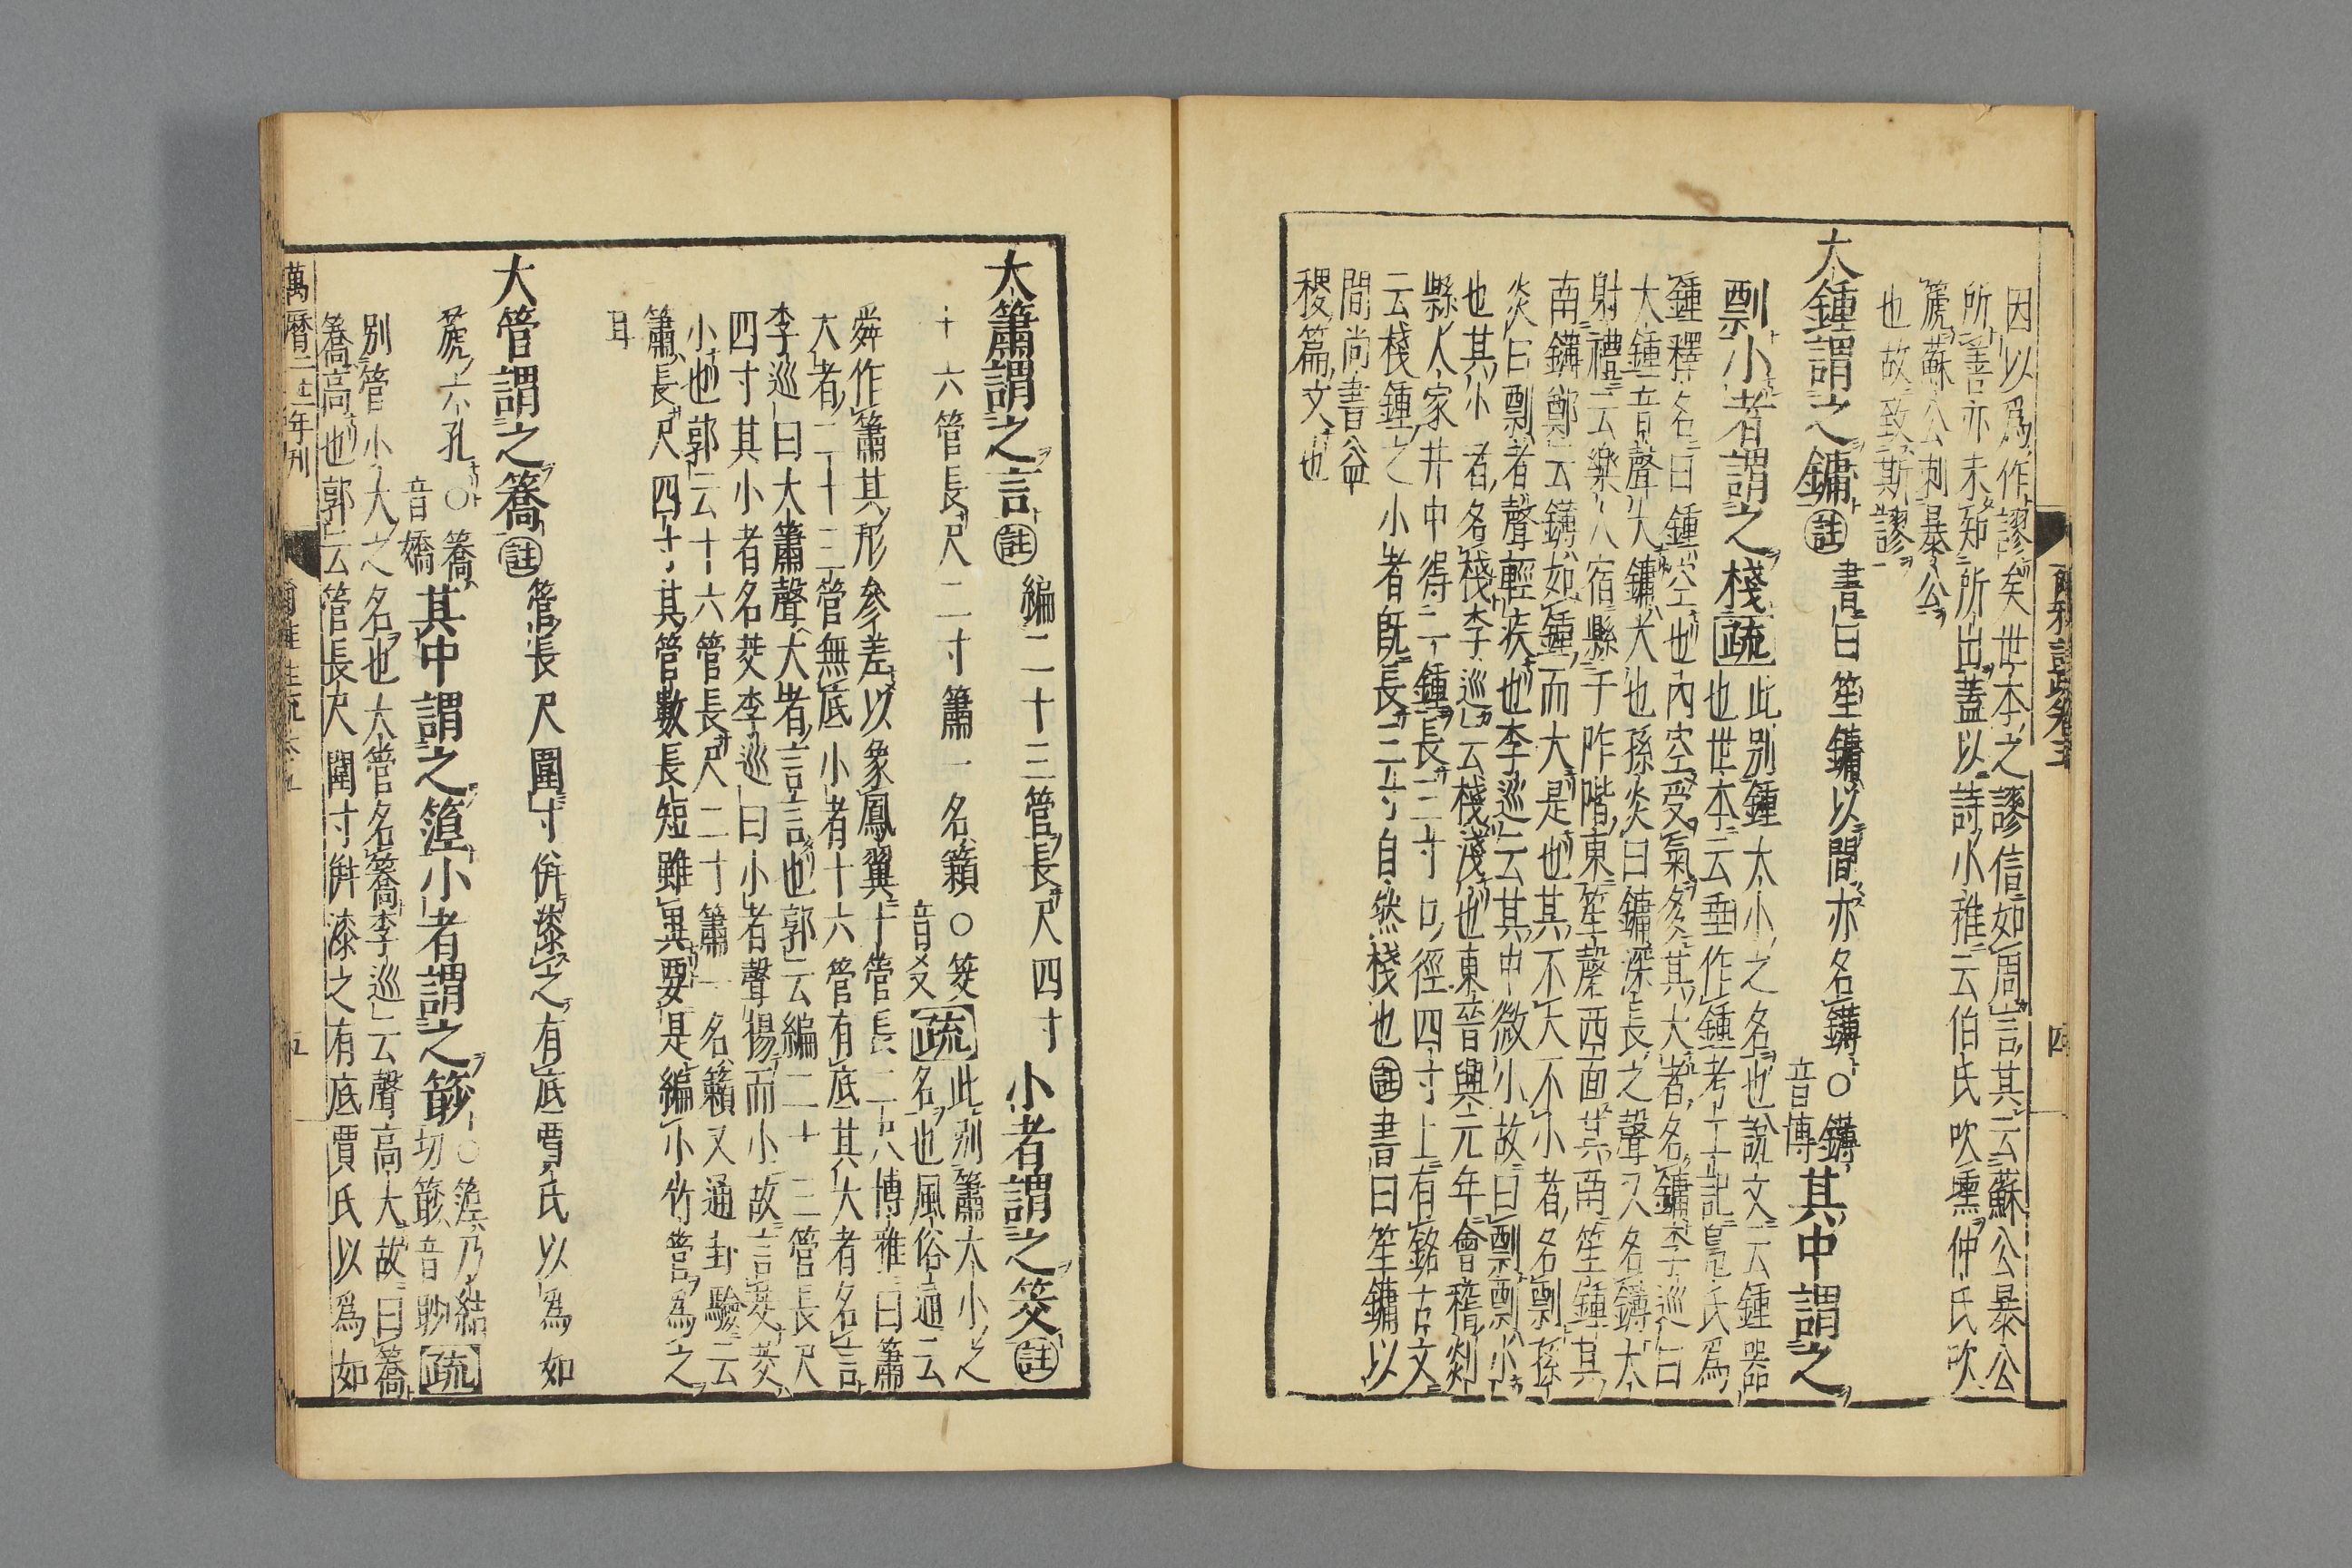 因以爲作謬矣世本之謬信如周言其云蘇公暴公
所善亦未知所出蓋以詩小雅云伯氏吹壎仲氏吹
篪蘇公刺暴公
也故致斯謬
大鍾謂之鏞註書曰笙鏞以間亦名鑮○鑮音博其中謂之
剽小者謂之棧疏此別鍾大小之名也說文云鍾器
也世本云垂作鍾考工記鳧氏爲
鍾釋名曰鍾空也內空受氣多其大者名鏞李巡曰
大鍾音聲大鏞大也孫炎曰鏞深長之聲又名鑮大
射禮云樂人宿縣于阼階東笙磬西面其南笙鍾其
南鑮鄭云鑮如鍾而大是也其不大不小者名剽孫
炎曰剽者聲輕疾也李巡云其中微小故曰剽剽小
也其小者名棧李巡云棧淺也東晉興元年會稽剡
縣人家井中得一鍾長三寸口徑四寸上有銘古文
云棧鍾之小者既長三寸自然棧也註書曰笙鏞以
間尚書益
稷篇文也
爾雅註疏卷五
四
大簫謂之言註編二十三管長尺四寸小者謂之筊註
十六管長尺二寸簫一名籟○筊音爻疏此別簫大小之
名也風俗通云
舜作簫其形參差以象鳳翼十管長二尺博雅曰簫
大者二十三管無底小者十六管有底其大者名言
李巡曰大簫聲大者言言也郭云編二十三管長尺
四寸其小者名筊李巡曰小者聲揚而小故言筊筊
小也郭云十六管長尺二寸簫一名籟又通卦驗云
簫長尺四寸其管數長短雖異要是編小竹管爲之
耳
大管謂之簥註管長尺圍寸併漆之有底賈氏以爲如
篪六孔○簥音嬌其中謂之篞小者謂之篎○篞乃結切篎音眇疏
別管小大之名也大管名簥李巡云聲高大故曰簥
簥高也郭云管長尺圍寸併漆之有底賈氏以爲如
萬曆二十一年刊
爾雅註疏卷五
五